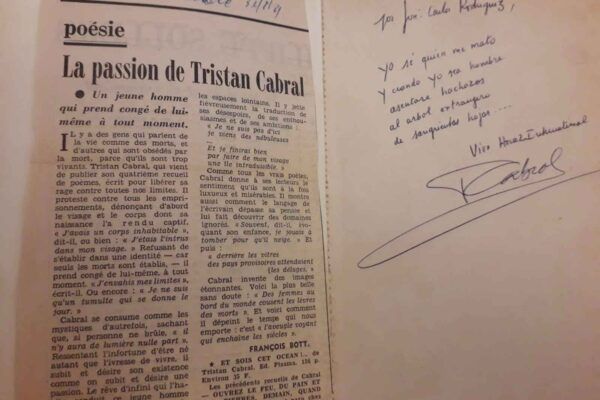 poésie
La passion de Tristan Cabral
● Un jeune homme
qui prend congé de lui-
même à tout moment.
IL y a des gens qui parlent de
la vie comme des morts, et
d'autres qui sont obsédés par
la mort, parce qu'ils sont trop
vivants. Tristan Cabral, qui vient
de publier son quatrième recueil
de poèmes, écrit pour libérer sa
rage contre toutes nos limites. Il
proteste contre tous les empri-
sonnements, dénonçant d'abord
le visage et le corps dont sa
naissance l'a rendu captif.
« J'avais un corps inhabitable »,
dit-il, ou bien : « J'étais l'intrus
dans mon visage. » Refusant de
s'établir dans une identité — car
seuls les morts sont établis, — il
prend congé de lui-même, à tout
moment. « J'envahis mes limites »,
écrit-il. Ou encore : « Je ne suis
qu'un tumulte qui se donne le
jour. »
Cabral se consume comme les
mystiques d'autrefois, sachant
que, si personne ne brûle, « il
n'y aura de lumière nulle part ».
Ressentant l'infortune d'être né
autant que l'ivresse de vivre, il
désire et subit son existence
comme on subit et désire une
passion. Le rêve d'infini qui l'ha-
conduit ce jeune homme
les espaces lointains. Il y jette
fiévreusement la traduction de
ses désespoirs, de ses enthou-
siasmes et de ses ambitions :
« Je ne suis pas d'ici
je viens des nébuleuses
—
Et je finirai bien
par faire de mon visage
une île irréductible. »
Comme tous les vrais poètes,
Cabral donne à ses lecteurs le
sentiment qu'ils sont à la fois
luxueux et misérables. Il montre
aussi comment le langage de
l'écrivain dépasse sa pensée et
lui fait découvrir des domaines
ignorés. « Souvent, dit-il, évo-
quant son enfance, je jouais à
tomber pour qu'il neige. » Et
puis :
« derrière les vitres
des pays provisoires attendaient
(les déluges. »
Cabral invente des images
étonnantes. Voici la plus belle
sans doute : « Des femmes au
bord du monde cousent les lèvres
des morts ». Et voici comment
il dépeint le temps qui nous
emporte : c'est « l'aveugle voyant
qui enchaîne les siècles ».
FRANÇOIS BOTT.
★ ET SOIS CET OCEAN !.. de
Tristan Cabral. Ed. Plasma. 134 p.
Environ 35 F.
Les précédents recueils de Cabral
— OUVREZ LE FEU, DU PAIN ET
PIERRES, DEMAIN, QUAND
por José Carlos Rodríguez,
yo sé quien me mato
y cuando yo sea hombre
al arbol extranjero
de sangrientas hojas ....
Viva
Cabral